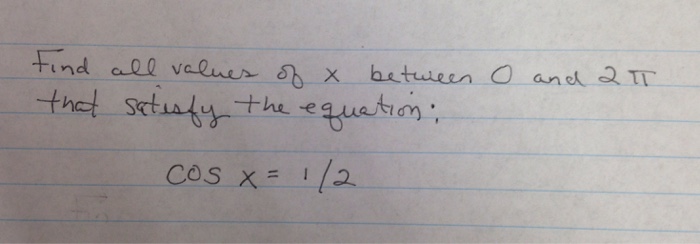 Find all values of x between 0 and 2π
that satisfy the equation:
cos x = 1/2